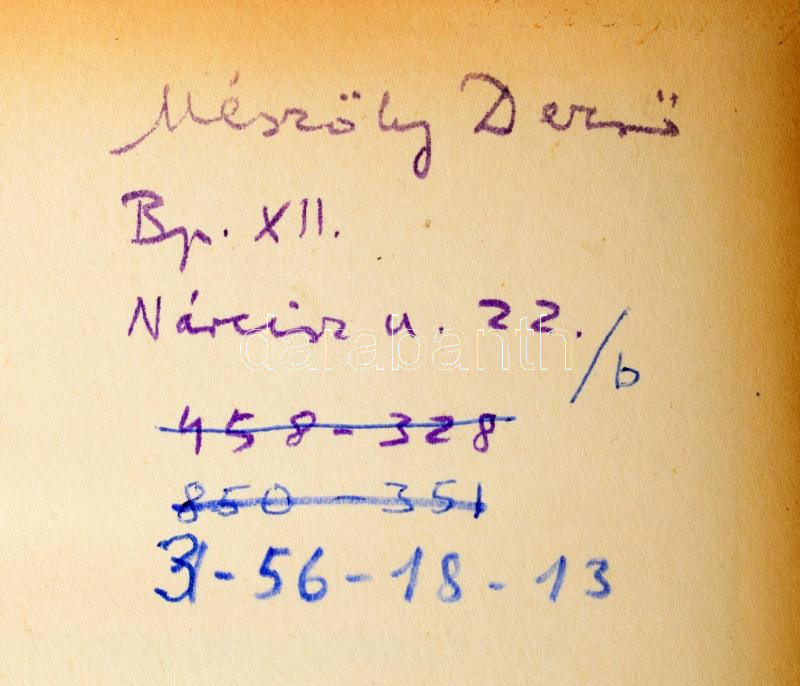 Mészöly Dezső
Bp. XII.
Nárcisz u. 22./b
darabanth
458-328
850-351
31-56-18-13